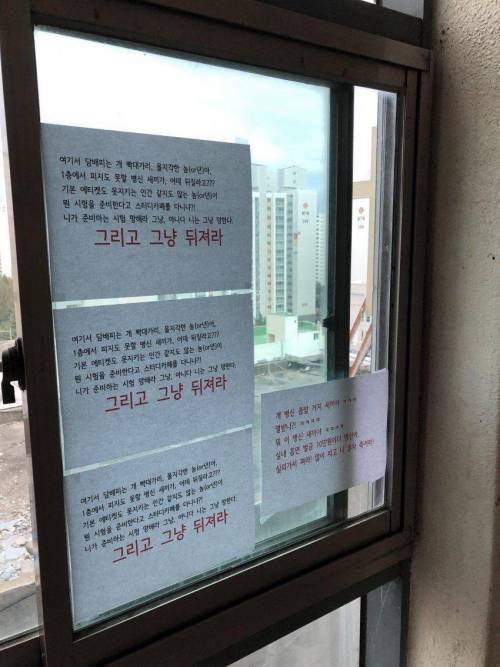 여기서 담배피는 개 빡대가리, 몰지각한 놈(or년)아,
1층에서 피지도 못할 병신 새끼가, 어때 뒤질라고???
기본 에티켓도 못지키는 인간 같지도 않는 놈(or년)이
뭔 시험을 준비한다고 스터디카페를 다니냐?!
니가 준비하는 시험 망해라 그냥, 아니다 니는 그냥 망한다.
그리고 그냥 뒤져라
여기서 담배피는 개 빡대가리, 몰지각한 놈(or년)아,
1층에서 피지도 못할 병신 새끼가, 어때 뒤질라고???
기본 에티켓도 못지키는 인간 같지도 않는 놈(or년)이
뭔 시험을 준비한다고 스터디카페를 다니냐?!
니가 준비하는 시험 망해라 그냥, 아니다 니는 그냥 망한다.
그리고 그냥 뒤져라
여기서 담배피는 개 빡대가리, 몰지각한 놈(or년)아,
1층에서 피지도 못할 병신 새끼가, 어때 뒤질라고???
기본 에티켓도 못지키는 인간 같지도 않는 놈(or년)이
뭔 시험을 준비한다고 스터디카페를 다니냐?!
니가 준비하는 시험 망해라 그냥, 아니다 니는 그냥 망한다.
그리고 그냥 뒤져라
개 병신 흡연 거지 새끼야 ㅋㅋㅋ
열받냐?! ㅋㅋㅋㅋ
뭐 이 병신 새끼야 ㅋㅋㅋㅋ
실내 흡연 벌금 10만원이다 병신아,
실외가서 펴라! 많이 피고 니 혼자 죽어라!